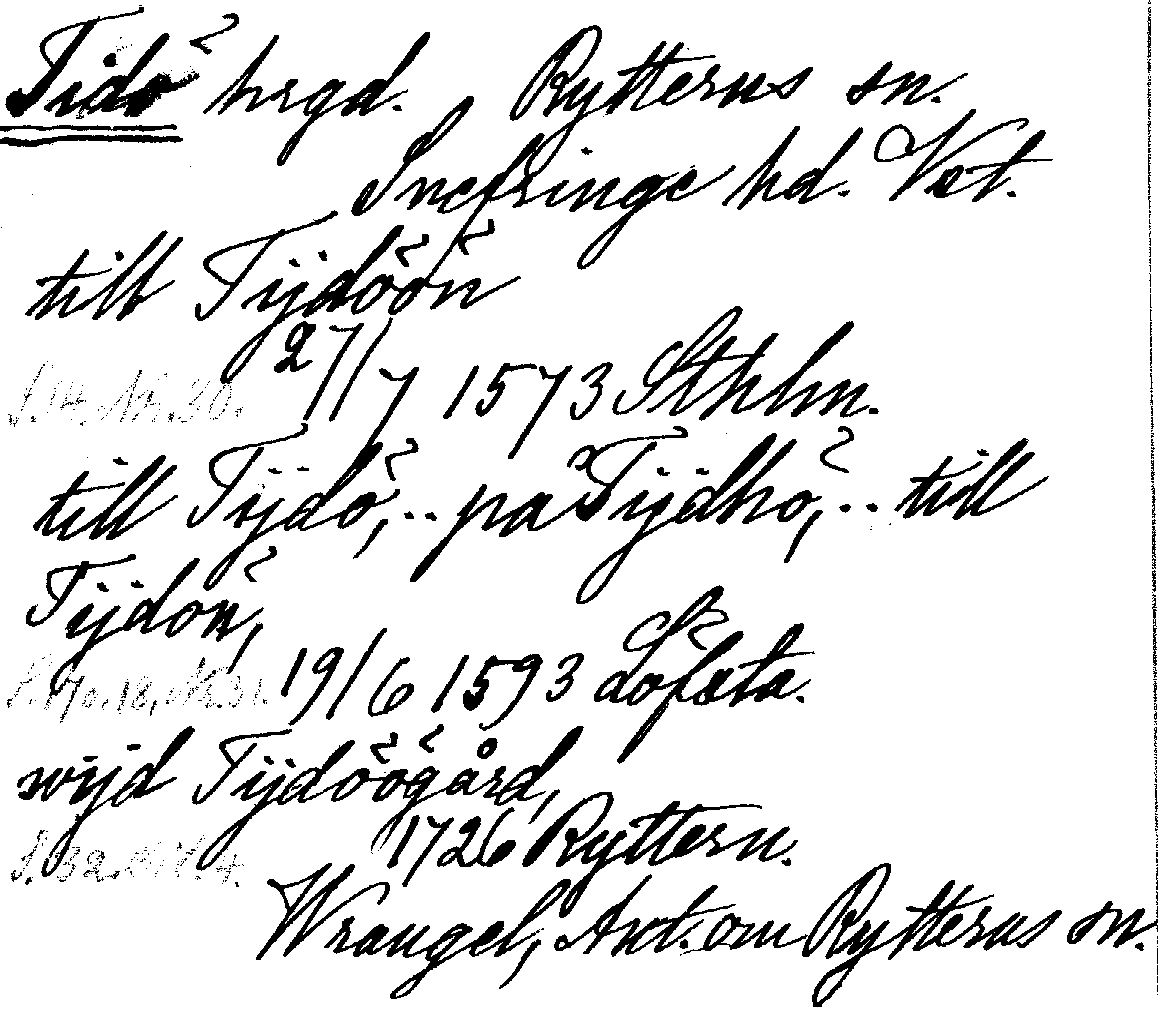 Tidö hrgd. Rytterns sn.
Snefringe hd. Vst.
till Tijdöön
27/7 1573 Sthlm.
S. 14. Nr. 30.
till Tijdö,.. pa Tijdhö,.. till
Tijdön,
19/6 1593 Löfsta.
wijd Tijdöögård,
1726 Ryttern.
Wrangel, Ant. om Ryttern sn.